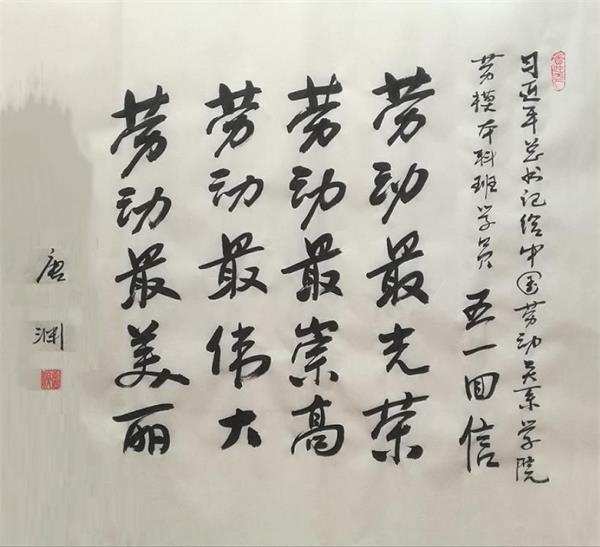 习近平总书记给中国劳动关系学院
劳模本科班学员 五一回信
劳动最光荣
劳动最崇高
劳动最伟大
劳动最美丽
唐渊